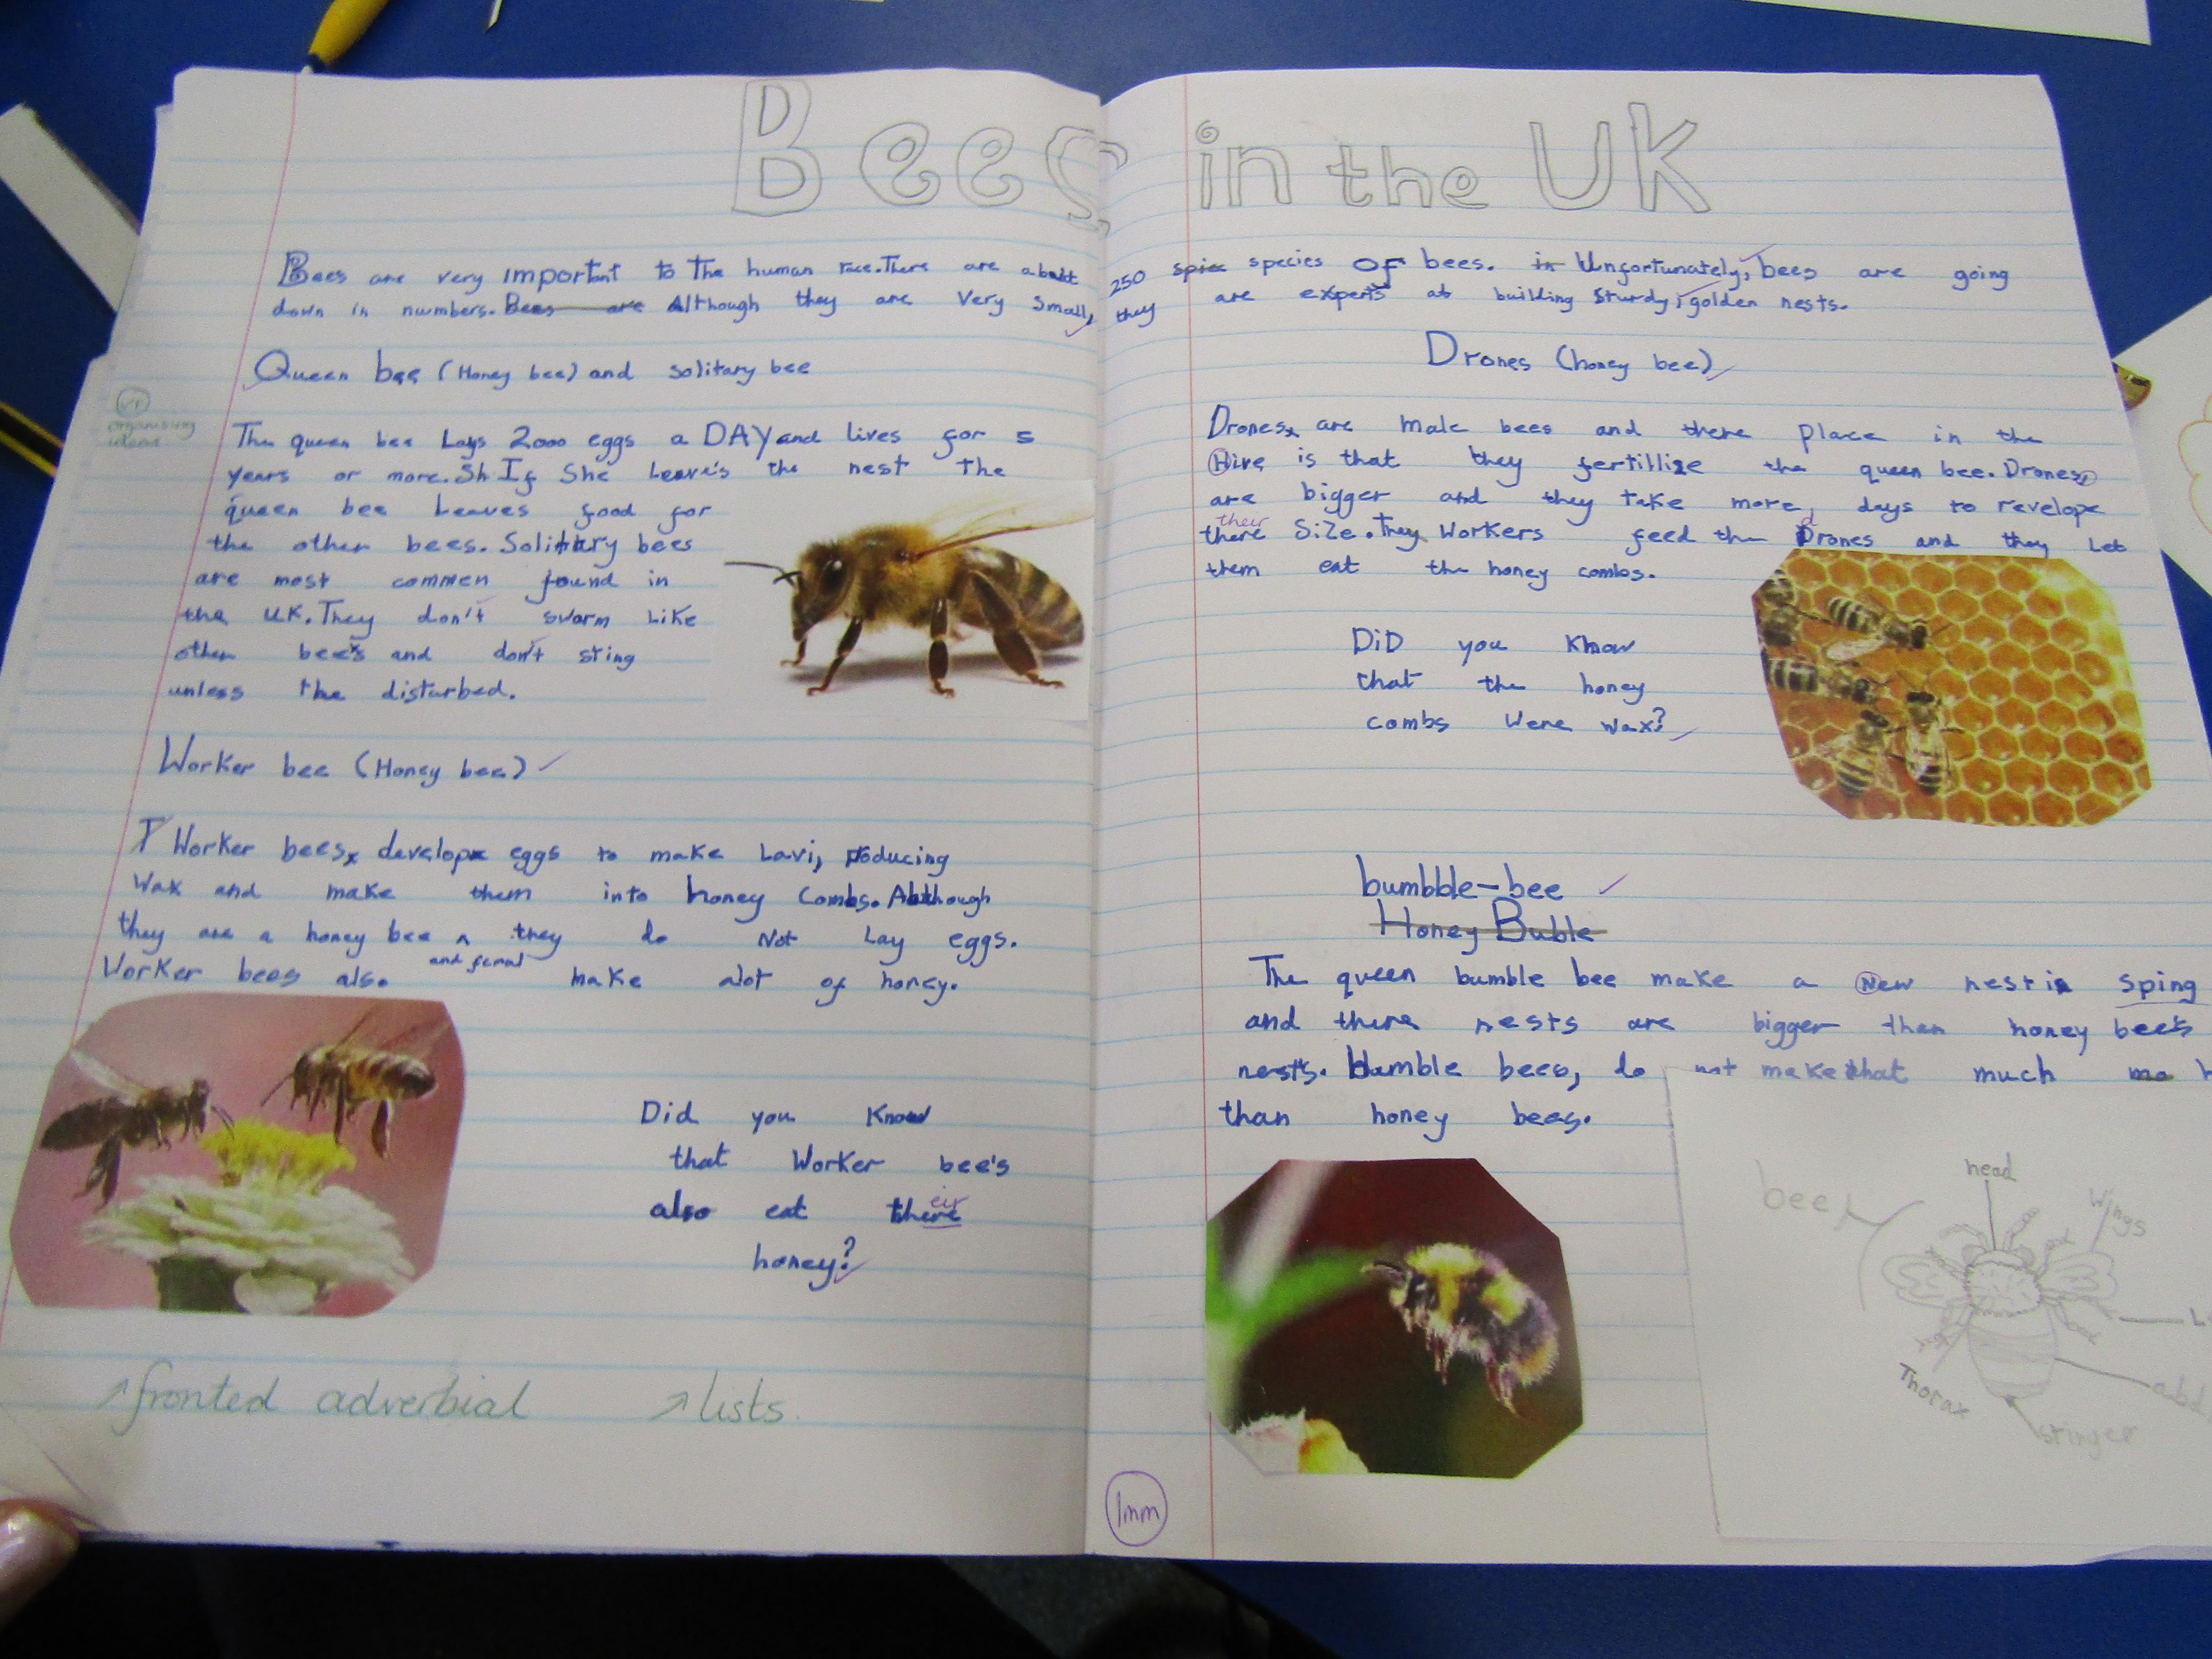 Bees in the UK
Bees are very important to the human race. There are about 250 species of bees. Unfortunately, bees are going
down in numbers. Bees are Although they are very small, they are experts at building sturdy, golden nests.
Queen bee (Honey bee) and solitary bee
organising
ideas
The queen bee Lays 2000 eggs a DAY and lives for 5
years or more. Sh If She Leave's the nest the
queen bee Leaves food for
the other bees. Solitary bees
are most commen found in
the UK. They don't swarm Like
other bee's and don't sting
unless the disturbed.
Worker bee (Honey bee)
Worker bees, develop eggs to make Lavi, roducing
Wax and make them into honey Combs. Although
they are a honey bee and femal they do Not Lay eggs.
Worker bees also make alot of honey.
Did you Know
that Worker bee's
also eat there eir
honey?
fronted adverbial
lists.
Drones (honey bee)
Drones, are male bees and there place in the
Hive is that they fertillize the queen bee. Drones,
are bigger and they take more, days to revelope
their
there Size. They Workers feed the Drones and they Let
them eat the honey combs.
DiD you Know
that the honey
combs Were wax?
bumbble-bee
Honey Buble
The queen bumble bee make a New nest in sping
and there nests are bigger then honey bee's
nests. bumble bees, do not make that much mo
than honey bees.
bee
head
wings
Thorax
stinger
1mm